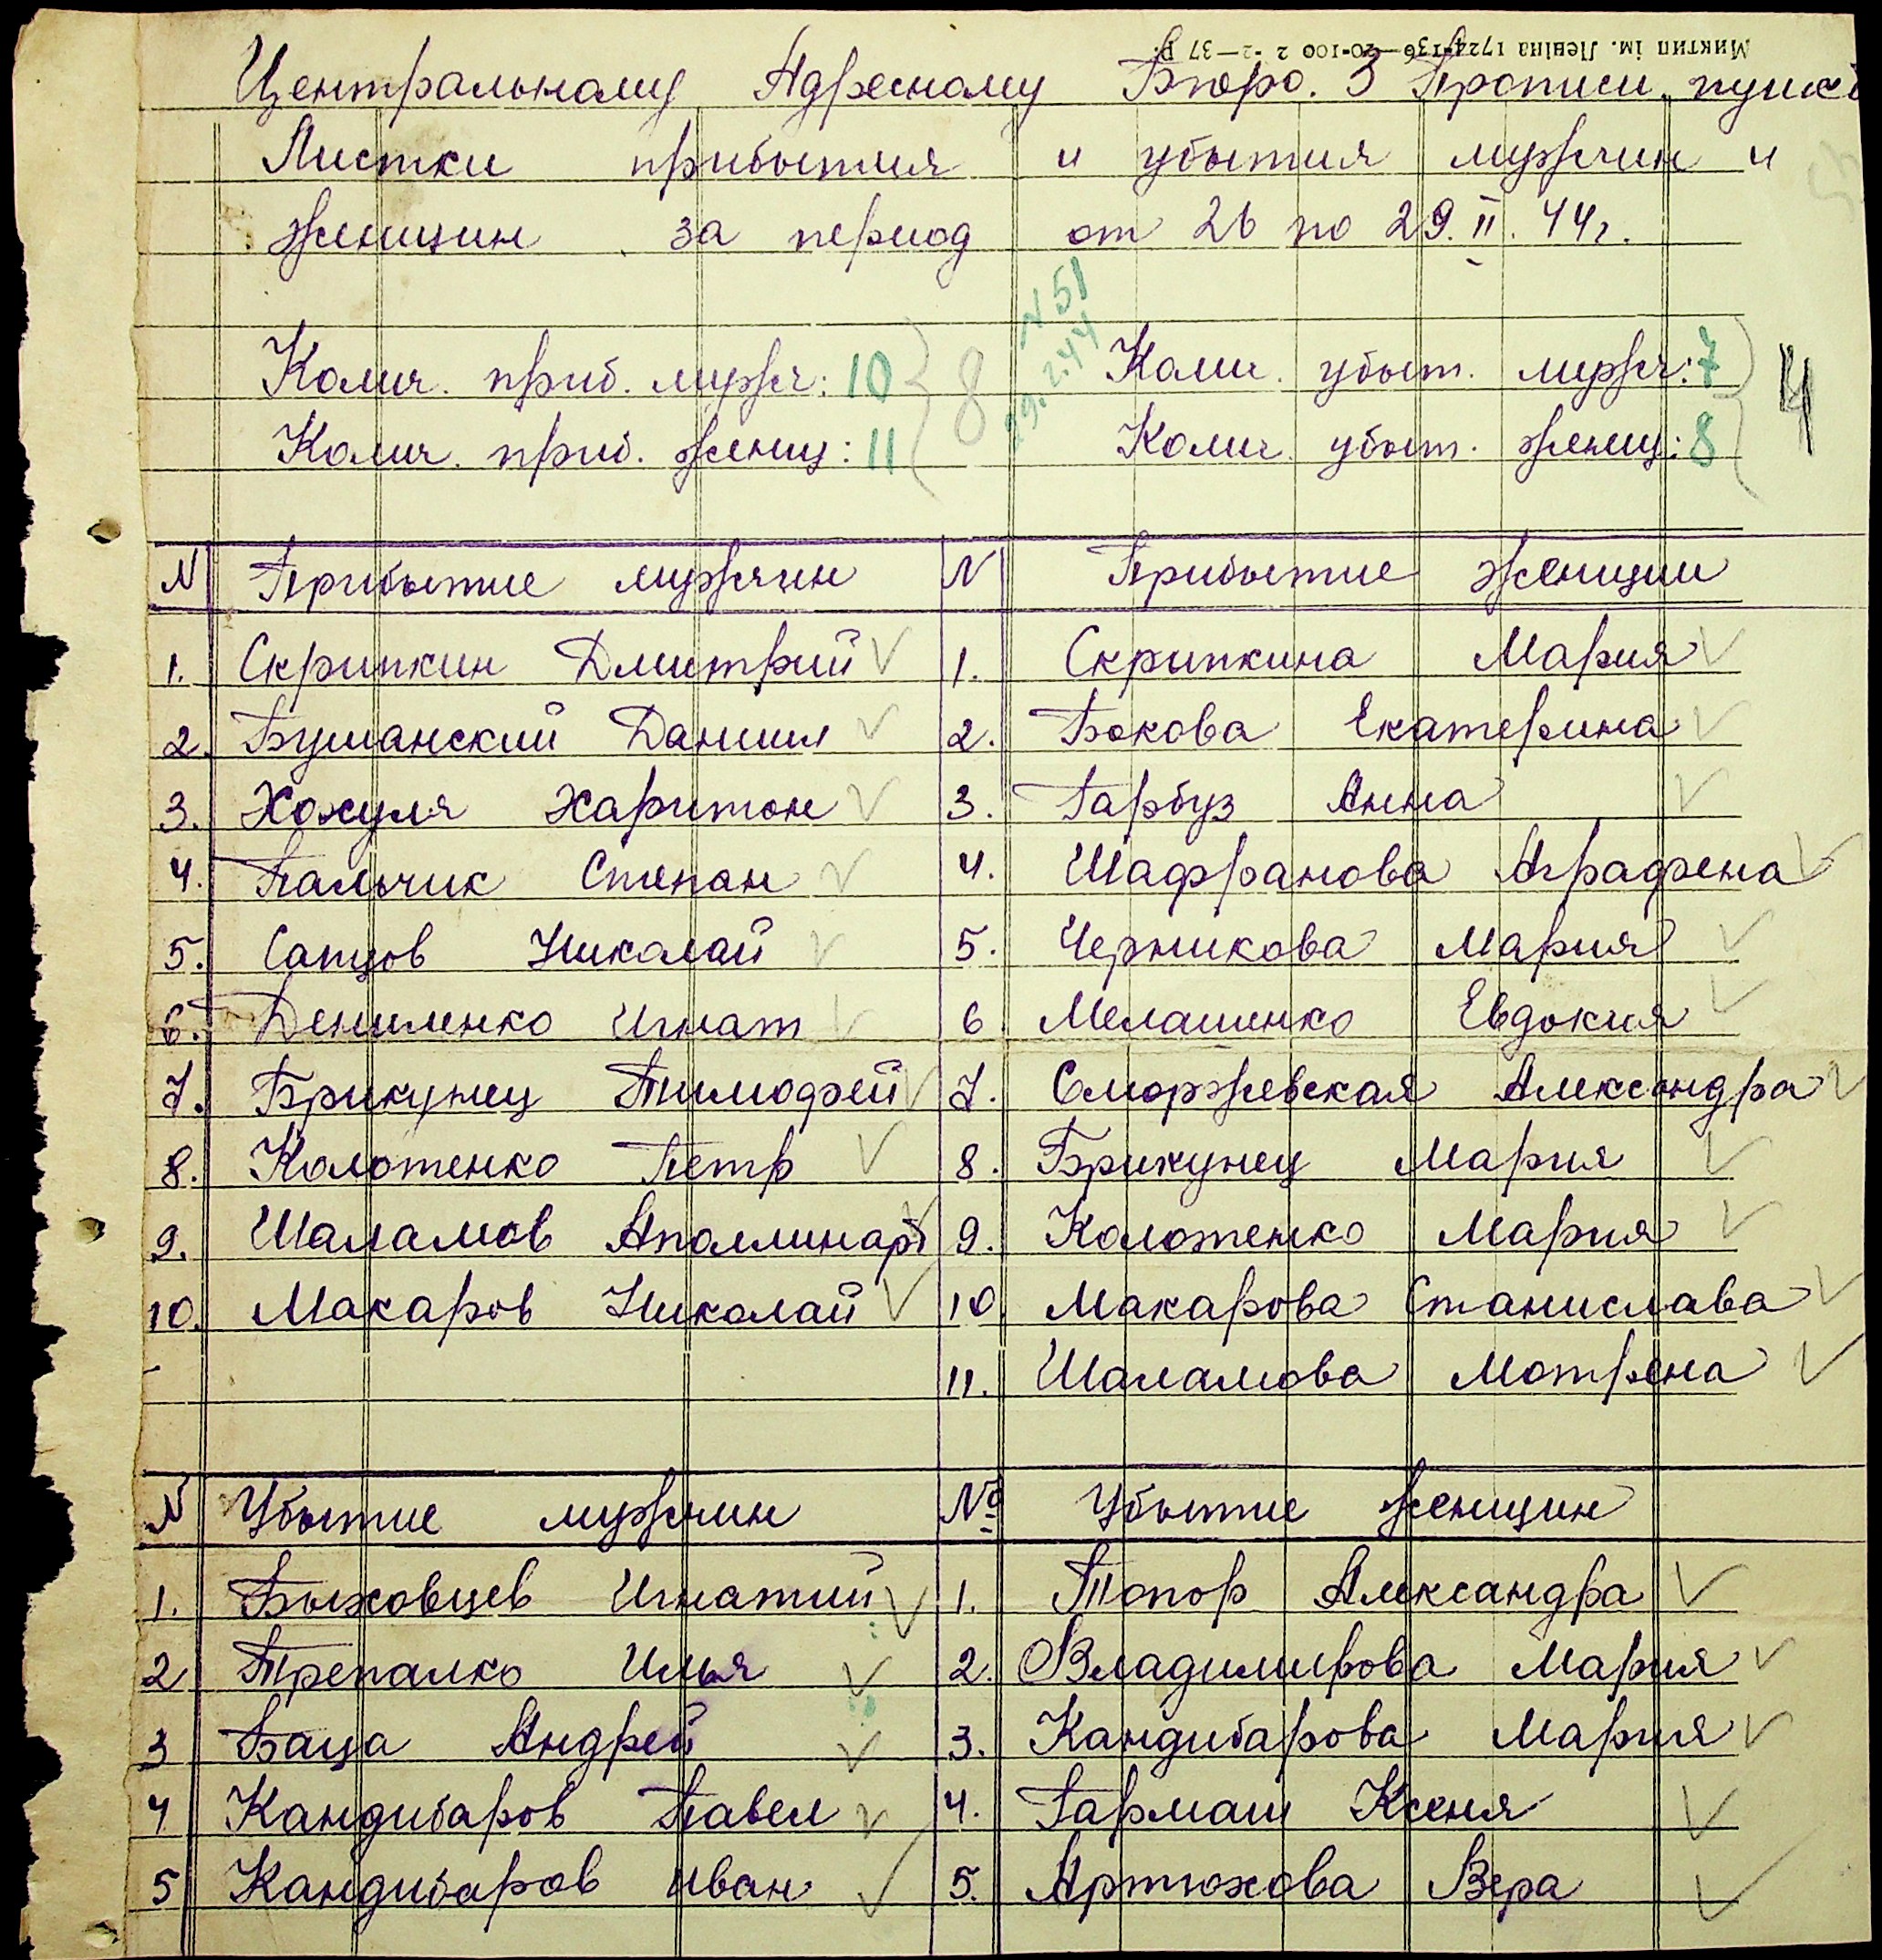 Миктип ім. Леніна 1724-136—20-100 2-2—37 р.
Центральному Адресному Бюро. 3 Прописн. пункт
Листки прибытия и убытия мужчин и
женщин за период от 26 по 29.II.44г.
N 51
29.2.44
Колич. приб. мужч: 10 Колич. убыт. мужч: 7
8 4
Колич. приб. женщ: 11 Колич. убыт. женщ: 8
N Прибытие мужчин N Прибытие женщин
1. Скрипкин Дмитрий 1. Скрипкина Мария
2. Бушанский Даниил 2. Бокова Екатерина
3. Хохуля Харитон 3. Гарбуз Анна
4. Пальчик Степан 4. Шафранова Аграфена
5. Сапцов Николай 5. Черникова Мария
6. Дениленко Игнат 6 Мелашенко Евдокия
7. Брикунец Тимофей 7. Сморжевская Александра
8. Колотенко Петр 8. Брикунец Мария
9. Шаламов Аполлинар 9. Колотенко Мария
10. Макаров Николай 10. Макарова Станислава
11. Шаламова Мотрена
N Убытие мужчин № Убытие женщин
1. Быховцев Игнатий 1. Топор Александра
2 Трепалко Илья 2. Владимирова Мария
3 Баца Андрей 3. Кандибарова Мария
4 Кандибаров Павел 4. Гармаш Ксеня
5 Кандибаров Иван 5. Артюхова Вера